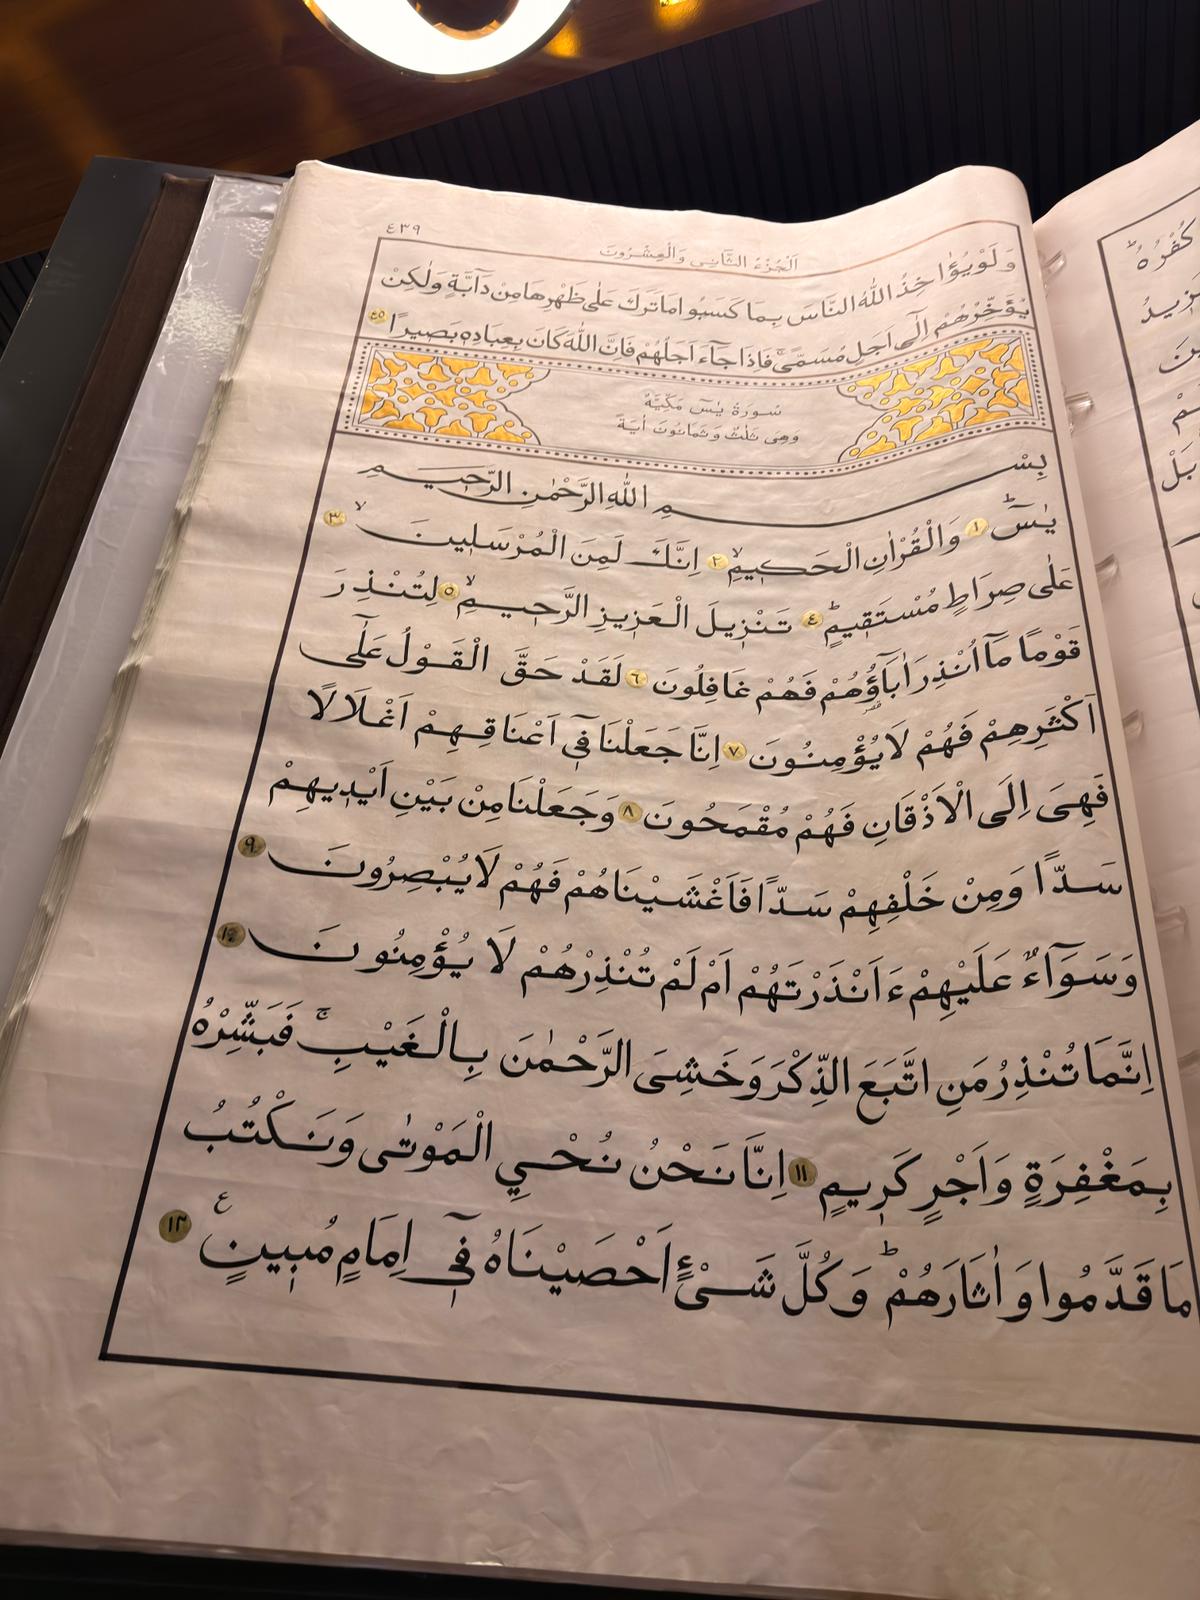 ٤٣٩
اَلْجُزْءُ الثَّانِى وَالْعِشْرُونَ
وَلَوْ يُؤٰاخِذُ اللّٰهُ النَّاسَ بِمَا كَسَبُوا مَا تَرَكَ عَلٰى ظَهْرِهَا مِنْ دَآبَّةٍ وَلٰكِنْ
يُؤَخِّرُهُمْ اِلٰٓى اَجَلٍ مُسَمًّىۚ فَاِذَا جَٓاءَ اَجَلُهُمْ فَاِنَّ اللّٰهَ كَانَ بِعِبَادِهٖ بَصٖيرًا ٤٥
سُورَةُ يٰسٓ مَكِّيَّةٌ
وَهِىَ ثَلٰثٌ وَثَمَانُونَ اٰيَةً
بِسْمِ اللّٰهِ الرَّحْمٰنِ الرَّحٖيمِ
يٰسٓۜ ١ وَالْقُرْاٰنِ الْحَكٖيمِۙ ٢ اِنَّكَ لَمِنَ الْمُرْسَلٖينَۙ ٣
عَلٰى صِرَاطٍ مُسْتَقٖيمٍۜ ٤ تَنْزٖيلَ الْعَزٖيزِ الرَّحٖيمِۙ ٥ لِتُنْذِرَ
قَوْمًا مَٓا اُنْذِرَ اٰبَٓاؤُ۬هُمْ فَهُمْ غَافِلُونَ ٦ لَقَدْ حَقَّ الْقَوْلُ عَلٰٓى
اَكْثَرِهِمْ فَهُمْ لَا يُؤْمِنُونَ ٧ اِنَّا جَعَلْنَا فٖٓى اَعْنَاقِهِمْ اَغْلَالًا
فَهِىَ اِلَى الْاَذْقَانِ فَهُمْ مُقْمَحُونَ ٨ وَجَعَلْنَا مِنْ بَيْنِ اَيْدٖيهِمْ
سَدًّا وَمِنْ خَلْفِهِمْ سَدًّا فَاَغْشَيْنَاهُمْ فَهُمْ لَا يُبْصِرُونَ ٩
وَسَوَٓاءٌ عَلَيْهِمْ ءَاَنْذَرْتَهُمْ اَمْ لَمْ تُنْذِرْهُمْ لَا يُؤْمِنُونَ ١٠
اِنَّمَا تُنْذِرُ مَنِ اتَّبَعَ الذِّكْرَ وَخَشِىَ الرَّحْمٰنَ بِالْغَيْبِۚ فَبَشِّرْهُ
بِمَغْفِرَةٍ وَاَجْرٍ كَرٖيمٍ ١١ اِنَّا نَحْنُ نُحْيِ الْمَوْتٰى وَنَكْتُبُ
مَا قَدَّمُوا وَاٰثَارَهُمْۜ وَكُلَّ شَىْءٍ اَحْصَيْنَاهُ فٖٓى اِمَامٍ مُبٖينٍ ع ١٢
كُفْرُهُۜ
بَلْ